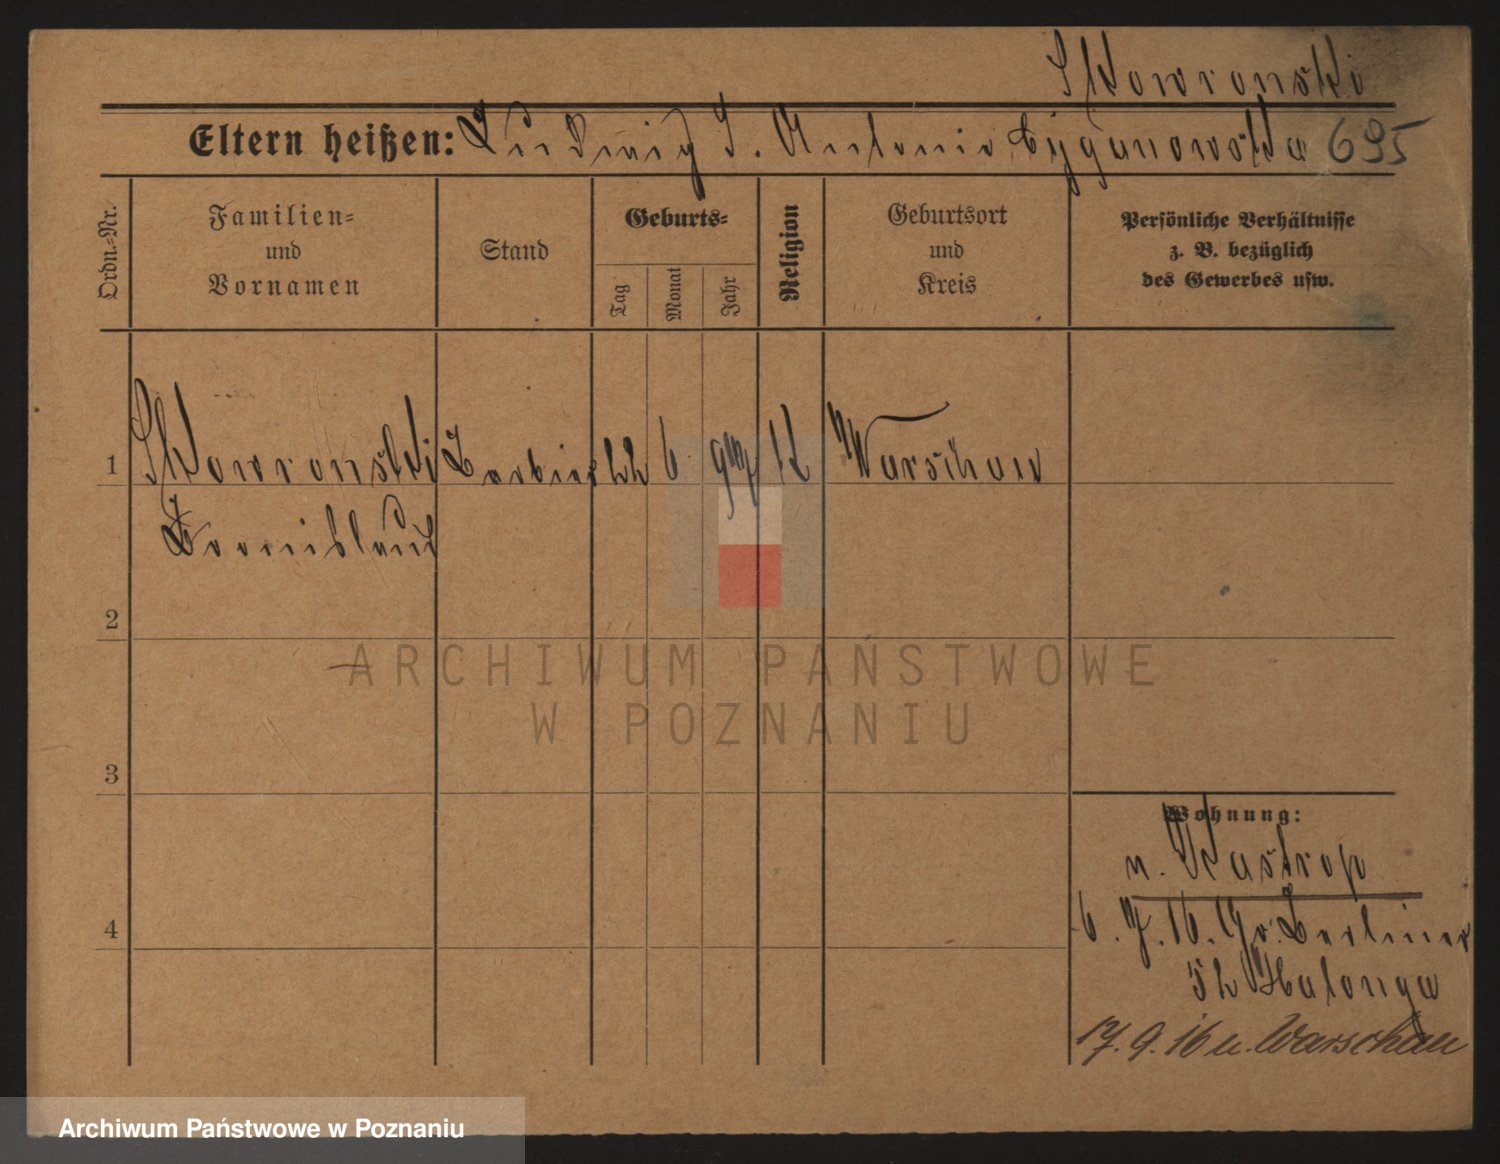 Skowronski
Eltern heißen: Ludwig u. Antonie Cyganowska 695
Ordn.-Nr.
Familien-
und
Vornamen
Stand
Geburts-
Tag
Monat
Jahr
Religion
Geburtsort
und
Kreis
Persönliche Verhältnisse
z. B. bezüglich
des Gewerbes usw.
1 Skowronski Barbier 22 6 97 K Warschau
Bronislaus
2
ARCHIWUM PAŃSTWOWE
W POZNANIU
3
Wohnung:
n. Kastrop
4
6. 7. 16. Gr. Berliner
52
17. 9. 16 n. Warschau
Archiwum Państwowe w Poznaniu